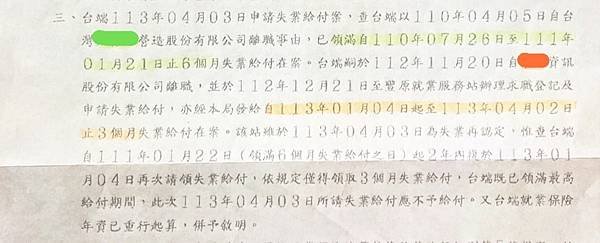 三、台端113年04月03日申請失業給付案，查台端以110年04月05日自台
灣 營造股份有限公司離職事由，已領滿自110年07月26日至111年
01月21日止6個月失業給付在案。台端嗣於112年11月20日自 資訊
股份有限公司離職，並於112年12月21日至豐原就業服務站辦理求職登記及
申請失業給付，亦經本局發給自113年01月04日起至113年04月02日
止3個月失業給付在案。該站雖於113年04月03日為失業再認定，惟查台端
自111年01月22日（領滿6個月失業給付之日）起2年內復於113年01
月04日再次請領失業給付，依規定僅得領取3個月失業給付，台端既已領滿最高
給付期間，此次113年04月03日所請失業給付應不予給付。又台端就業保險
年資已重行起算，併予敘明。